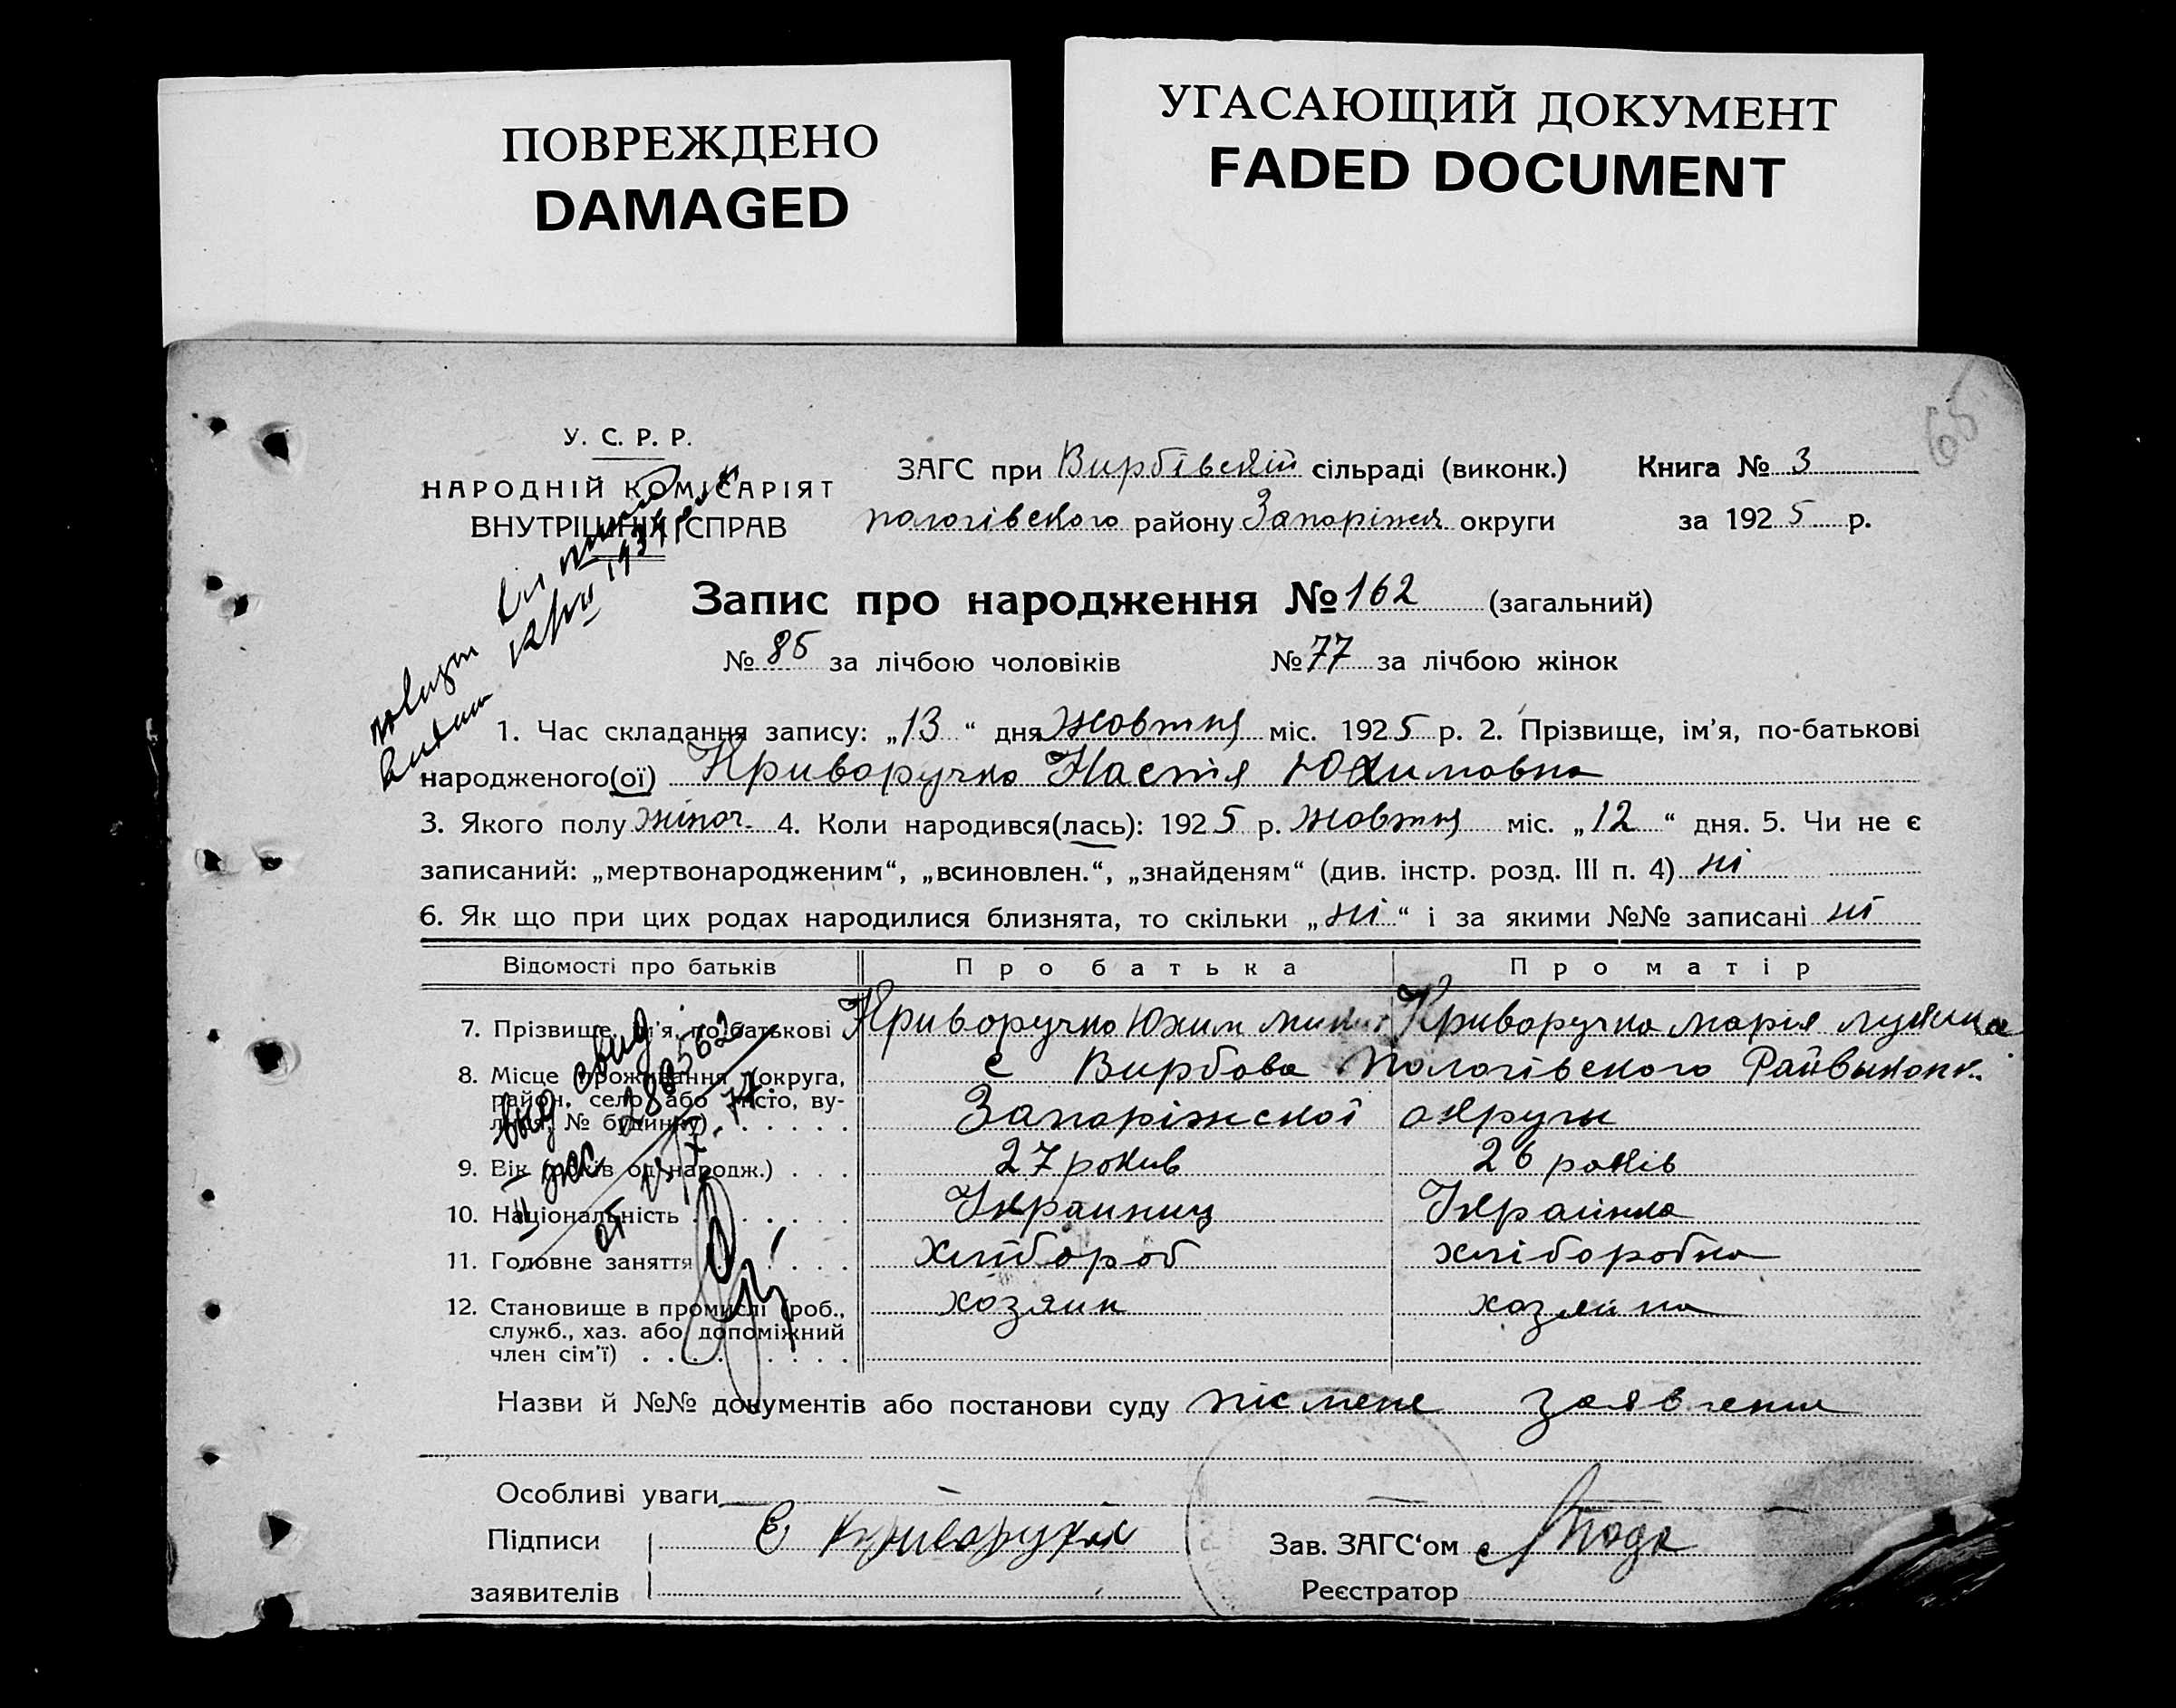 ПОВРЕЖДЕНО
DAMAGED
УГАСАЮЩИЙ ДОКУМЕНТ
FADED DOCUMENT
65
У. С. Р. Р.
НАРОДНІЙ КОМІСАРІЯТ
ВНУТРІШНІХ СПРАВ
ЗАГС при Вирбівскій сільраді (виконк.) Книга № 3
пологівского району Запоріжся округи за 1925 р.
Запис про народження № 162 (загальний)
№ 85 за лічбою чоловіків № 77 за лічбою жінок
1. Час складання запису: „13“ дня Жовтня міс. 1925 р. 2. Прізвище, ім'я, по-батькові
народженого(ої) Криворучко Настя Юхимовна
3. Якого полу жіноч. 4. Коли народився(лась): 1925 р. Жовтня міс. „12“ дня. 5. Чи не є
записаний: „мертвонародженим“, „всиновлен.“, „знайденям“ (див. інстр. розд. III п. 4) ні
6. Як що при цих родах народилися близнята, то скільки „ні“ і за якими №№ записані ні
Відомості про батьків Про батька Про матір
7. Прізвище, ім'я, по-батькові Криворучко Юхим Криворучко Марія
8. Місце проживання (округа, район, село або місто, вулиця, № будинку) с Вирбова Пологівского Райвыконк.
Запоріжскої округы
9. Вік (років од народж.) 27 рокив 26 років
10. Національність Украиниц Украинка
11. Головне заняття хлібороб хліборобка
12. Становище в промислі (роб., хозяин хозяйка
служб., хаз. або допоміжний
член сім'ї)
Назви й №№ документів або постанови суду пісмене заявления
Особливі уваги
Підписи Зав. ЗАГС'ом
заявителів Реєстратор